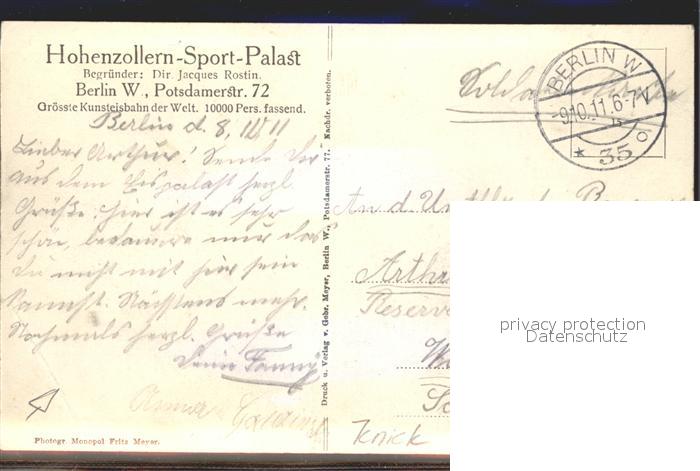 Hohenzollern-Sport-Palast
Begründer: Dir. Jacques Rostin.
Berlin W., Potsdamerstr. 72
Grösste Kunsteisbahn der Welt. 10000 Pers. fassend.
Berlin d. 8, 11
Lieber Arthur! Sende Dir
aus dem Eispalast herzl.
Grüße. Hier ist es sehr
schön, bedaure nur das
Du nicht mit hier sein
kannst. Nächstens mehr.
Nochmals herzl. Grüße
Deine Fanny
Photogr. Monopol Fritz Meyer.
Druck u. Verlag v. Gebr. Meyer, Berlin W., Potsdamerstr. 77. Nachdr. verboten.
BERLIN W
-9.10.11.6-7N
* 35
An d.
Arth
Reserv
Knick
privacy protection
Datenschutz